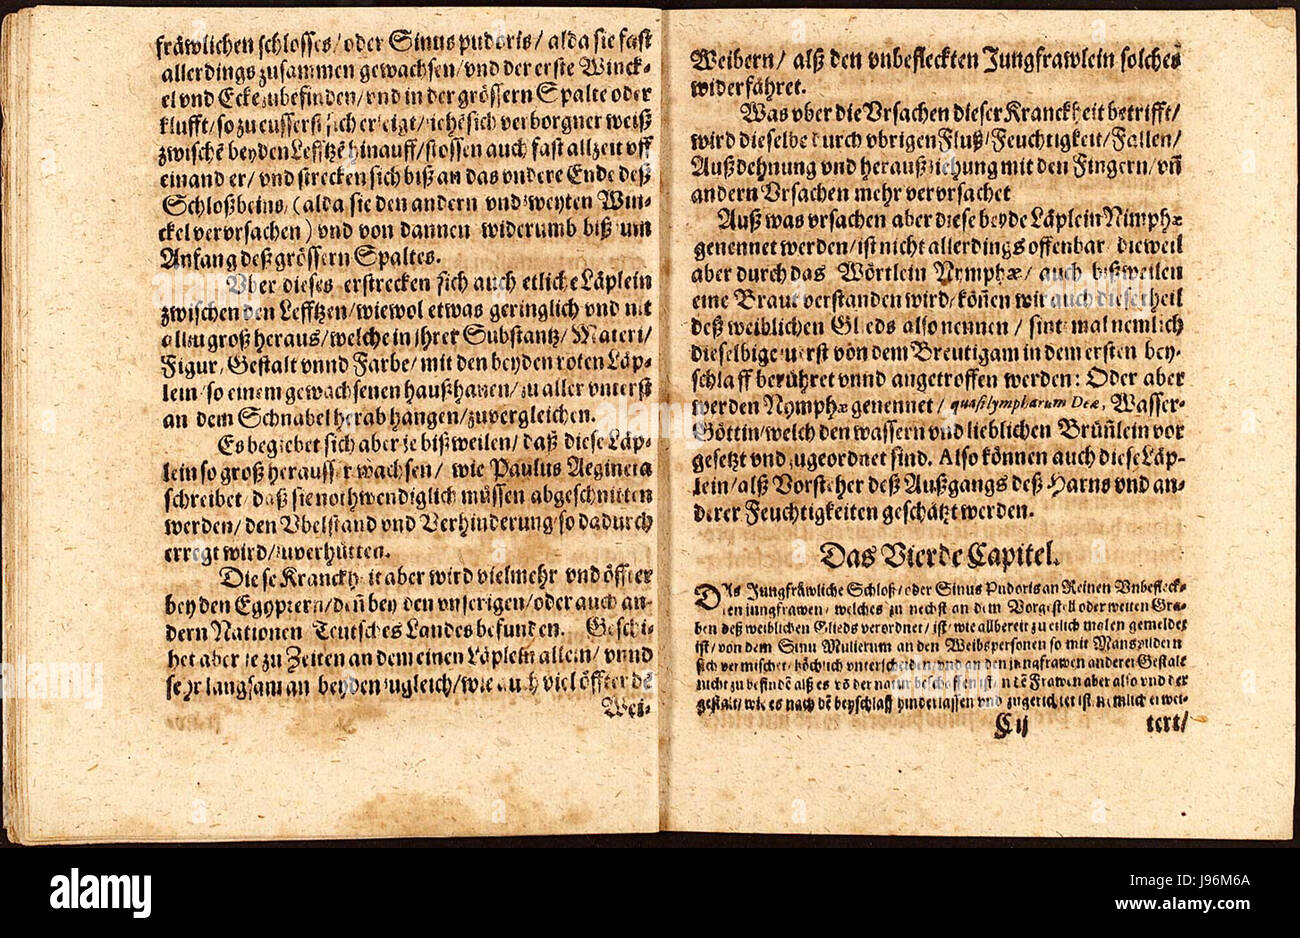 fräwlichen schlosses/ oder Sinus pudoris/ alda sie fast
allerdings zusammen gewachsen/ vnd der erste Winck-
el vnd Ecke zubefinden/ vnd in der grössern Spalte oder
klufft/ so zu eusserst sich ereigt/ verborgner weiß
zwischē beyden Lefftzē hinauff/ stossen auch fast allzeit off
einander/ vnd strecken sich biß an das vndere Ende deß
Schloßbeins/ (alda sie den andern vnd zweyten Win-
ckel vervrsachen) vnd von dannen widerumb biß um
Anfang deß grössern Spaltes.
Vber dieses erstrecken sich auch etliche Läplein
zwischen den Lefftzen/ wiewol etwas geringlich vnd nit
allzu groß heraus/ welche in jhrer Substantz/ Materi/
Figur/ Gestalt vnnd Farbe/ mit den beyden roten Läp-
lein/ so einem gewachsenen haußhanen/ zu aller vnterst
an dem Schnabel herab hangen/ zuvergleichen.
Es begiebet sich aber je bißweilen/ daß diese Läp-
lein so groß herausser wachsen/ wie Paulus Aegineta
schreibet/ daß sie nothwendiglich müssen abgeschnitten
werden/ den Vbelstand vnd Verhinderung/ so dadurch
erregt wird/ zuverhütten.
Diese Kranckheit aber wird vielmehr vnd öffter
bey den Egyptern/ deñ bey den vnserigen/ oder auch an-
dern Nationen Teutsches Landes befunden. Geschi-
het aber je zu Zeiten an dem einen Läplein allein/ vnnd
sehr langsam an beyden zugleich/ wie auch viel öffter dē
Wei-
Weibern/ alß den vnbefleckten Jungfrawlein solches
widerfähret.
Was vber die Vrsachen dieser Kranckheit betrifft/
wird dieselbe durch vbrigen Fluß/ Feuchtigkeit/ Fallen/
Außdehnung vnd heraußziehung mit den Fingern/ vñ
andern Vrsachen mehr vervrsachet
Auß was vrsachen aber diese beyde Läplein Nimphæ
genennet werden/ ist nicht allerdings offenbar dieweil
aber durch das Wörtlein Nymphæ/ auch bißweilen
eine Braut verstanden wird/ köñen wir auch diese theil
deß weiblichen Glieds also nennen/ sintemal nemlich
dieselbige zuerst von dem Breutigam in dem ersten bey-
schlaff berühret vnnd angetroffen werden: Oder aber
werden Nymphæ genennet/ quasi lympharum Deæ, Wasser-
Göttin/ welch den wassern vnd lieblichen Brüñlein vor
gesetzt vnd zugeordnet sind. Also können auch diese Läp-
lein/ alß Vorsteher deß Außgangs deß Harns vnd an-
derer Feuchtigkeiten geschätzt werden.
Das Vierde Capitel.
DAs Jungfräwliche Schloß/ oder Sinus Pudoris an Reinen Vnbefleck-
ten jungfrawen/ welches zu nechst an dem Vorgestell oder weiten Gra-
ben deß weiblichen Glieds verordnet/ ist/ wie allbereit zu etlich malen gemeldet
ist/ von dem Sinu Mulierum an den Weibspersonen so mit Mansbildern
sich vermischet/ höchlich vnterscheiden/ vnd an den jungfrawen anderer Gestalt
nicht zu befindē alß es vō der natur beschaffen ist/ in dē Frawen aber also vnd der
gestalt/ wie es nach dē beyschlaff hinderlassen vnd zugerichtet ist/ nemlich erwei-
C ij
tert/
alamy
Image ID: J96M6A
www.alamy.com